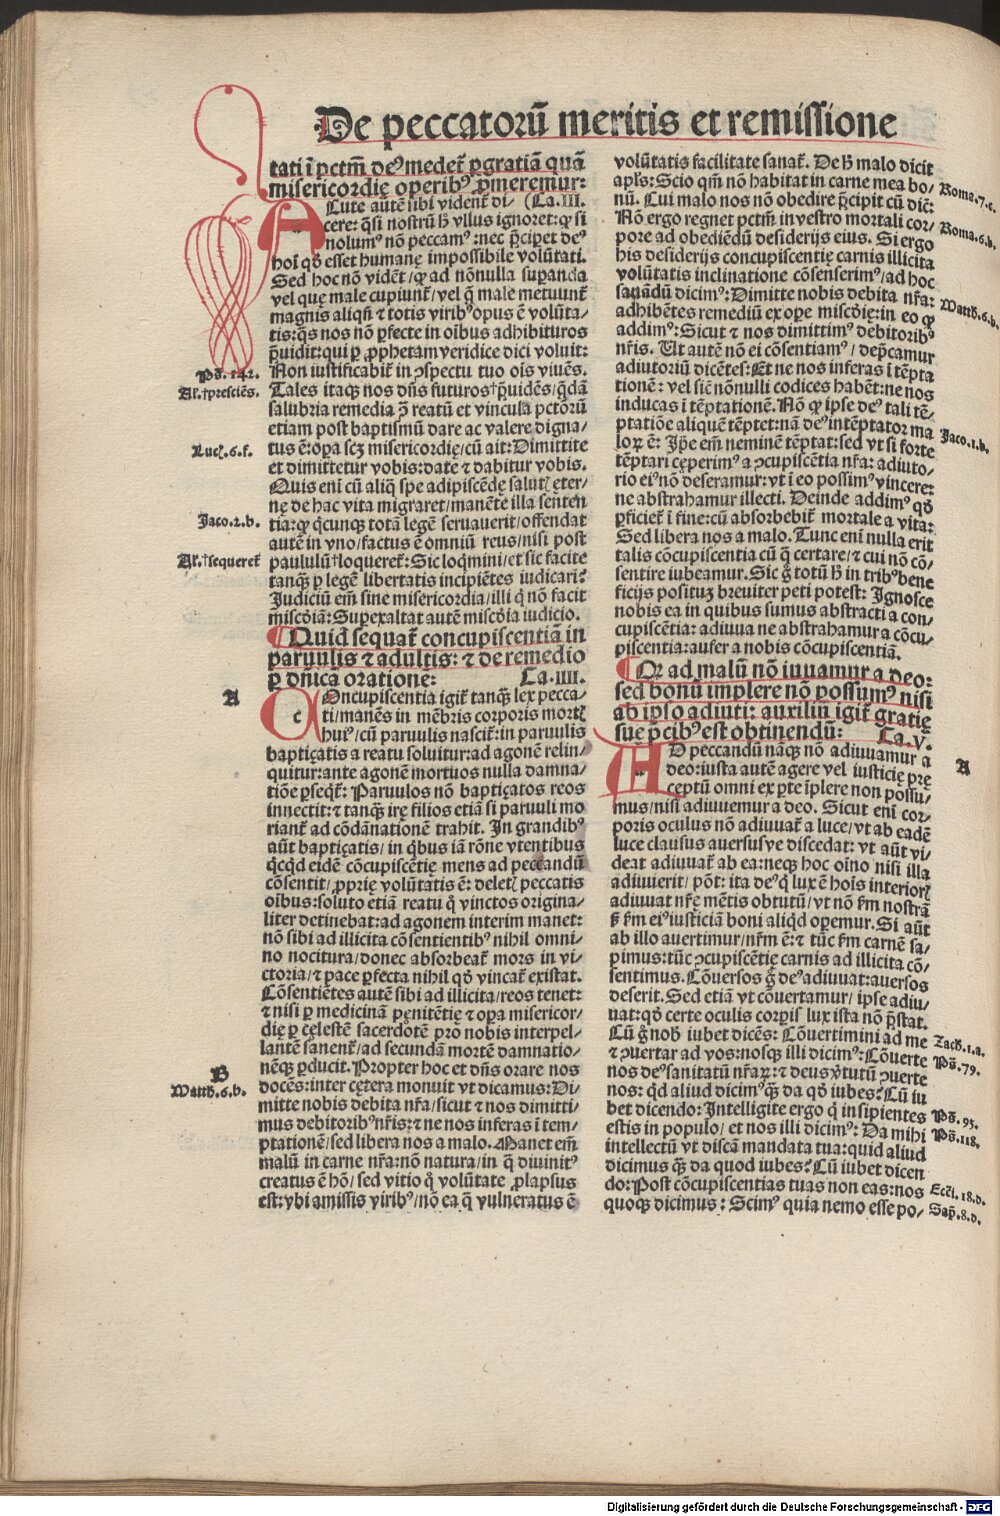 De peccatorū meritis et remissione
tati ī pctm̄ deꝰ medet᷑ ꝑ gratiā quā
misericordię operibꝰ ꝓmeremur:
Cute autē sibi vident᷑ di- (Ca.III.
cere: q̄si nostrū ħ vllus ignoret: ꝙ si
nolumꝰ nō peccamꝰ: nec p̄cipet deꝰ
hoī qd̄ esset humanę impossibile volūtati.
Sed hoc nō vidēt/ ꝙ ad nōnulla supanda
vel quę male cupiunt᷑/ vel q̄ male metuunt᷑
magnis aliqn̄ ⁊ totis viribꝰ opus ē volūta-
tis: q̄s nos nō ꝑfecte in oībus adhibituros
p̄uidit: qui ꝑ ꝓphetam veridice dici voluit:
Ps. 142.
Non iustificabit᷑ in ꝯspectu tuo oīs viuēs.
Al.†presciēs.
Tales itaqꝫ nos dn̄s futuros †p̄uidēs/ q̄dā
salubria remedia ꝯ̄ reatū et vincula pctōrū
etiam post baptismū dare ac valere digna-
Luc. 6. f.
tus ē: opa scꝫ misericordię/ cū ait: Dimittite
et dimittetur vobis: date ⁊ dabitur vobis.
Quis enī cū aliq̄ spe adipiscēdę salutꝭ ęter-
nę de hac vita migraret/ manēte illa senten
Jaco. 2. b.
tia: ꝙ q̇cunqꝫ totā legē seruauerit/ offendat
autē in vno/ factus ē omniū reus/ nisi post
Al.†sequeret᷑
paululū †loqueret᷑: Sic loq̇mini/ et sic facite
tanqꝫ ꝑ legē libertatis incipiētes iudicari?
Judiciū em̄ sine misericordia/ illi q̇ nō facit
mīscd̄iā: Supexaltat autē mīscd̄ia iudicio.
¶ Quid sequat᷑ concupiscentiā in
paruulis ⁊ adultis: ⁊ de remedio
ꝑ dn̄icā orationē: Ca.IIII.
A
Concupiscentia igit᷑ tanqꝫ lex pecca-
ti/ manēs in mēbris corporis mortꝭ
huiꝰ/ cū paruulis nascit᷑: in paruulis
baptiçatis a reatu soluitur: ad agonē relin-
quitur: ante agonē mortuos nulla damna-
tiōe ꝑseqt᷑: Paruulos nō baptiçatos reos
innectit: ⁊ tanqꝫ irę filios etiā si paruuli mo
riant᷑ ad cōdānationē trahit. In grandibꝰ
aūt baptiçatis/ in q̇bus iā rōne vtentibus
q̇cq̇d eidē cōcupiscētię mens ad peccandū
cōsentit/ ꝓprię volūtatis ē: deletꝭ peccatis
oībus: soluto etiā reatu q̇ vinctos origina-
liter detinebat: ad agonem interim manet:
nō sibi ad illicita cōsentientibꝰ nihil omni-
no nocitura/ donec absorbeat᷑ mors in vi-
ctoria/ ⁊ pace ꝑfecta nihil qd̄ vincat᷑ existat.
Cōsentiētes autē sibi ad illicita/ reos tenet:
⁊ nisi ꝑ medicinā pęnitētię ⁊ opa misericor-
dię ꝑ cęlestē sacerdotē ꝓ nobis interpel-
lantē sanent᷑/ ad secundā mortē damnatio-
nēqꝫ ꝑducit. Propter hoc et dn̄s orare nos
B
Matth. 6. b.
docēs: inter cętera monuit vt dicamus: Di-
mitte nobis debita nr̄a/ sicut ⁊ nos dimitti-
mus debitoribꝰ nr̄is: ⁊ ne nos inferas ī tem-
ptationē/ sed libera nos a malo. Manet em̄
malū in carne nr̄a: nō natura/ in q̄ diuinitꝰ
creatus ē hō/ sed vitio q̇ volūtate ꝓlapsus
est: vbi amissis viribꝰ/ nō ea q̄ vulneratus ē
volūtatis facilitate sanat᷑. De ħ malo dicit
Roma. 7. c.
apl̄s: Scio qm̄ nō habitat in carne mea bo-
nū. Cui malo nos nō obedire p̄cipit cū dic̄:
Roma. 6. b.
Nō ergo regnet pctm̄ in vestro mortali cor-
pore ad obediēdū desiderijs eius. Si ergo
his desiderijs concupiscentię carnis illicita
volūtatis inclinatione cōsenserimꝰ/ ad hoc
Matth. 6. b.
sanādū dicimꝰ: Dimitte nobis debita nr̄a:
adhibētes remediū ex ope mīscd̄ię: in eo ꝙ
addimꝰ: Sicut ⁊ nos dimittimꝰ debitoribꝰ
nr̄is. Ut autē nō ei cōsentiamꝰ/ dep̄camur
adiutoriū dicētes: Et ne nos inferas ī tēpta
tionē: vel sic̄ nōnulli codices habēt: ne nos
inducas ī tēptationē. Nō ꝙ ipse deꝰ tali tē-
Jaco. 1. b.
ptatiōe aliquē tēptet: nā deꝰ intēptator ma
loꝝ ē: Ip̄e em̄ neminē tēptat: sed vt si forte
tēptari cęperimꝰ a ꝯcupiscētia nr̄a: adiuto-
rio eiꝰ nō deseramur: vt ī eo possimꝰ vincere:
ne abstrahamur illecti. Deinde addimꝰ qd̄
ꝑficiet᷑ ī fine: cū absorbebit᷑ mortale a vita:
Sed libera nos a malo. Tunc enī nulla erit
talis cōcupiscentia cū q̄ certare/ ⁊ cui nō cō-
sentire iubeamur. Sic g̊ totū ħ in tribꝰ bene
ficijs posituꝫ breuiter peti potest: Ignosce
nobis ea in quibus sumus abstracti a con-
cupiscētia: adiuua ne abstrahamur a cōcu-
piscentia: aufer a nobis cōcupiscentiā.
¶ Qr ad malū nō iuuamur a deo:
sed bonū implere nō possumꝰ nisi
ab ipso adiuti: auxiliū igit᷑ gratię
suę p̄cibꝰ est obtinendū: Ca.V.
A
AD peccandū nāqꝫ nō adiuuamur a
deo: iusta autē agere vel iusticię pre
ceptū omni ex pte īplere non possu-
mus/ nisi adiuuemur a deo. Sicut enī cor-
poris oculus nō adiuuat᷑ a luce/ vt ab eadē
luce clausus auersusve discedat: vt aūt vi-
deat adiuuat᷑ ab ea: neqꝫ hoc oīno nisi illa
adiuuerit/ pōt: ita deꝰ q̇ lux ē hoīs interiorꝭ
adiuuat nr̄ę mētis obtutū/ vt nō s̄m nostrā
sꝫ s̄m eiꝰ iusticiā boni aliq̇d opemur. Si aūt
ab illo auertimur/ nr̄m ē: ⁊ tūc s̄m carnē sa-
pimus: tūc ꝯcupiscētię carnis ad illicita cō-
sentimus. Cōuersos g̊ deꝰ adiuuat: auersos
deserit. Sed etiā vt cōuertamur/ ipse adiu-
uat: qd̄ certe oculis corpis lux ista nō p̄stat.
Zach. 1. a.
Cū g̊ nob̄ iubet dicēs: Cōuertimini ad me
Ps. 79.
⁊ ꝯuertar ad vos: nosqꝫ illi dicimꝰ: Cōuerte
nos deꝰ sanitatū nr̄aꝝ: ⁊ deus ꝟtutū ꝯuerte
nos: qd aliud dicimꝰ qꝫ̄ da qd̄ iubes? Cū iu
Ps. 93.
bet dicendo: Intelligite ergo q̇ insipientes
Ps. 118.
estis in populo/ et nos illi dicimꝰ: Da mihi
intellectū vt discā mandata tua: quid aliud
dicimus qꝫ̄ da quod iubes? Cū iubet dicen
Ecci. 18. d.
do: Post cōcupiscentias tuas non eas: nos
Sap. 8. d.
quoqꝫ dicimus: Scimꝰ quia nemo esse po-
Digitalisierung gefördert durch die Deutsche Forschungsgemeinschaft - DFG